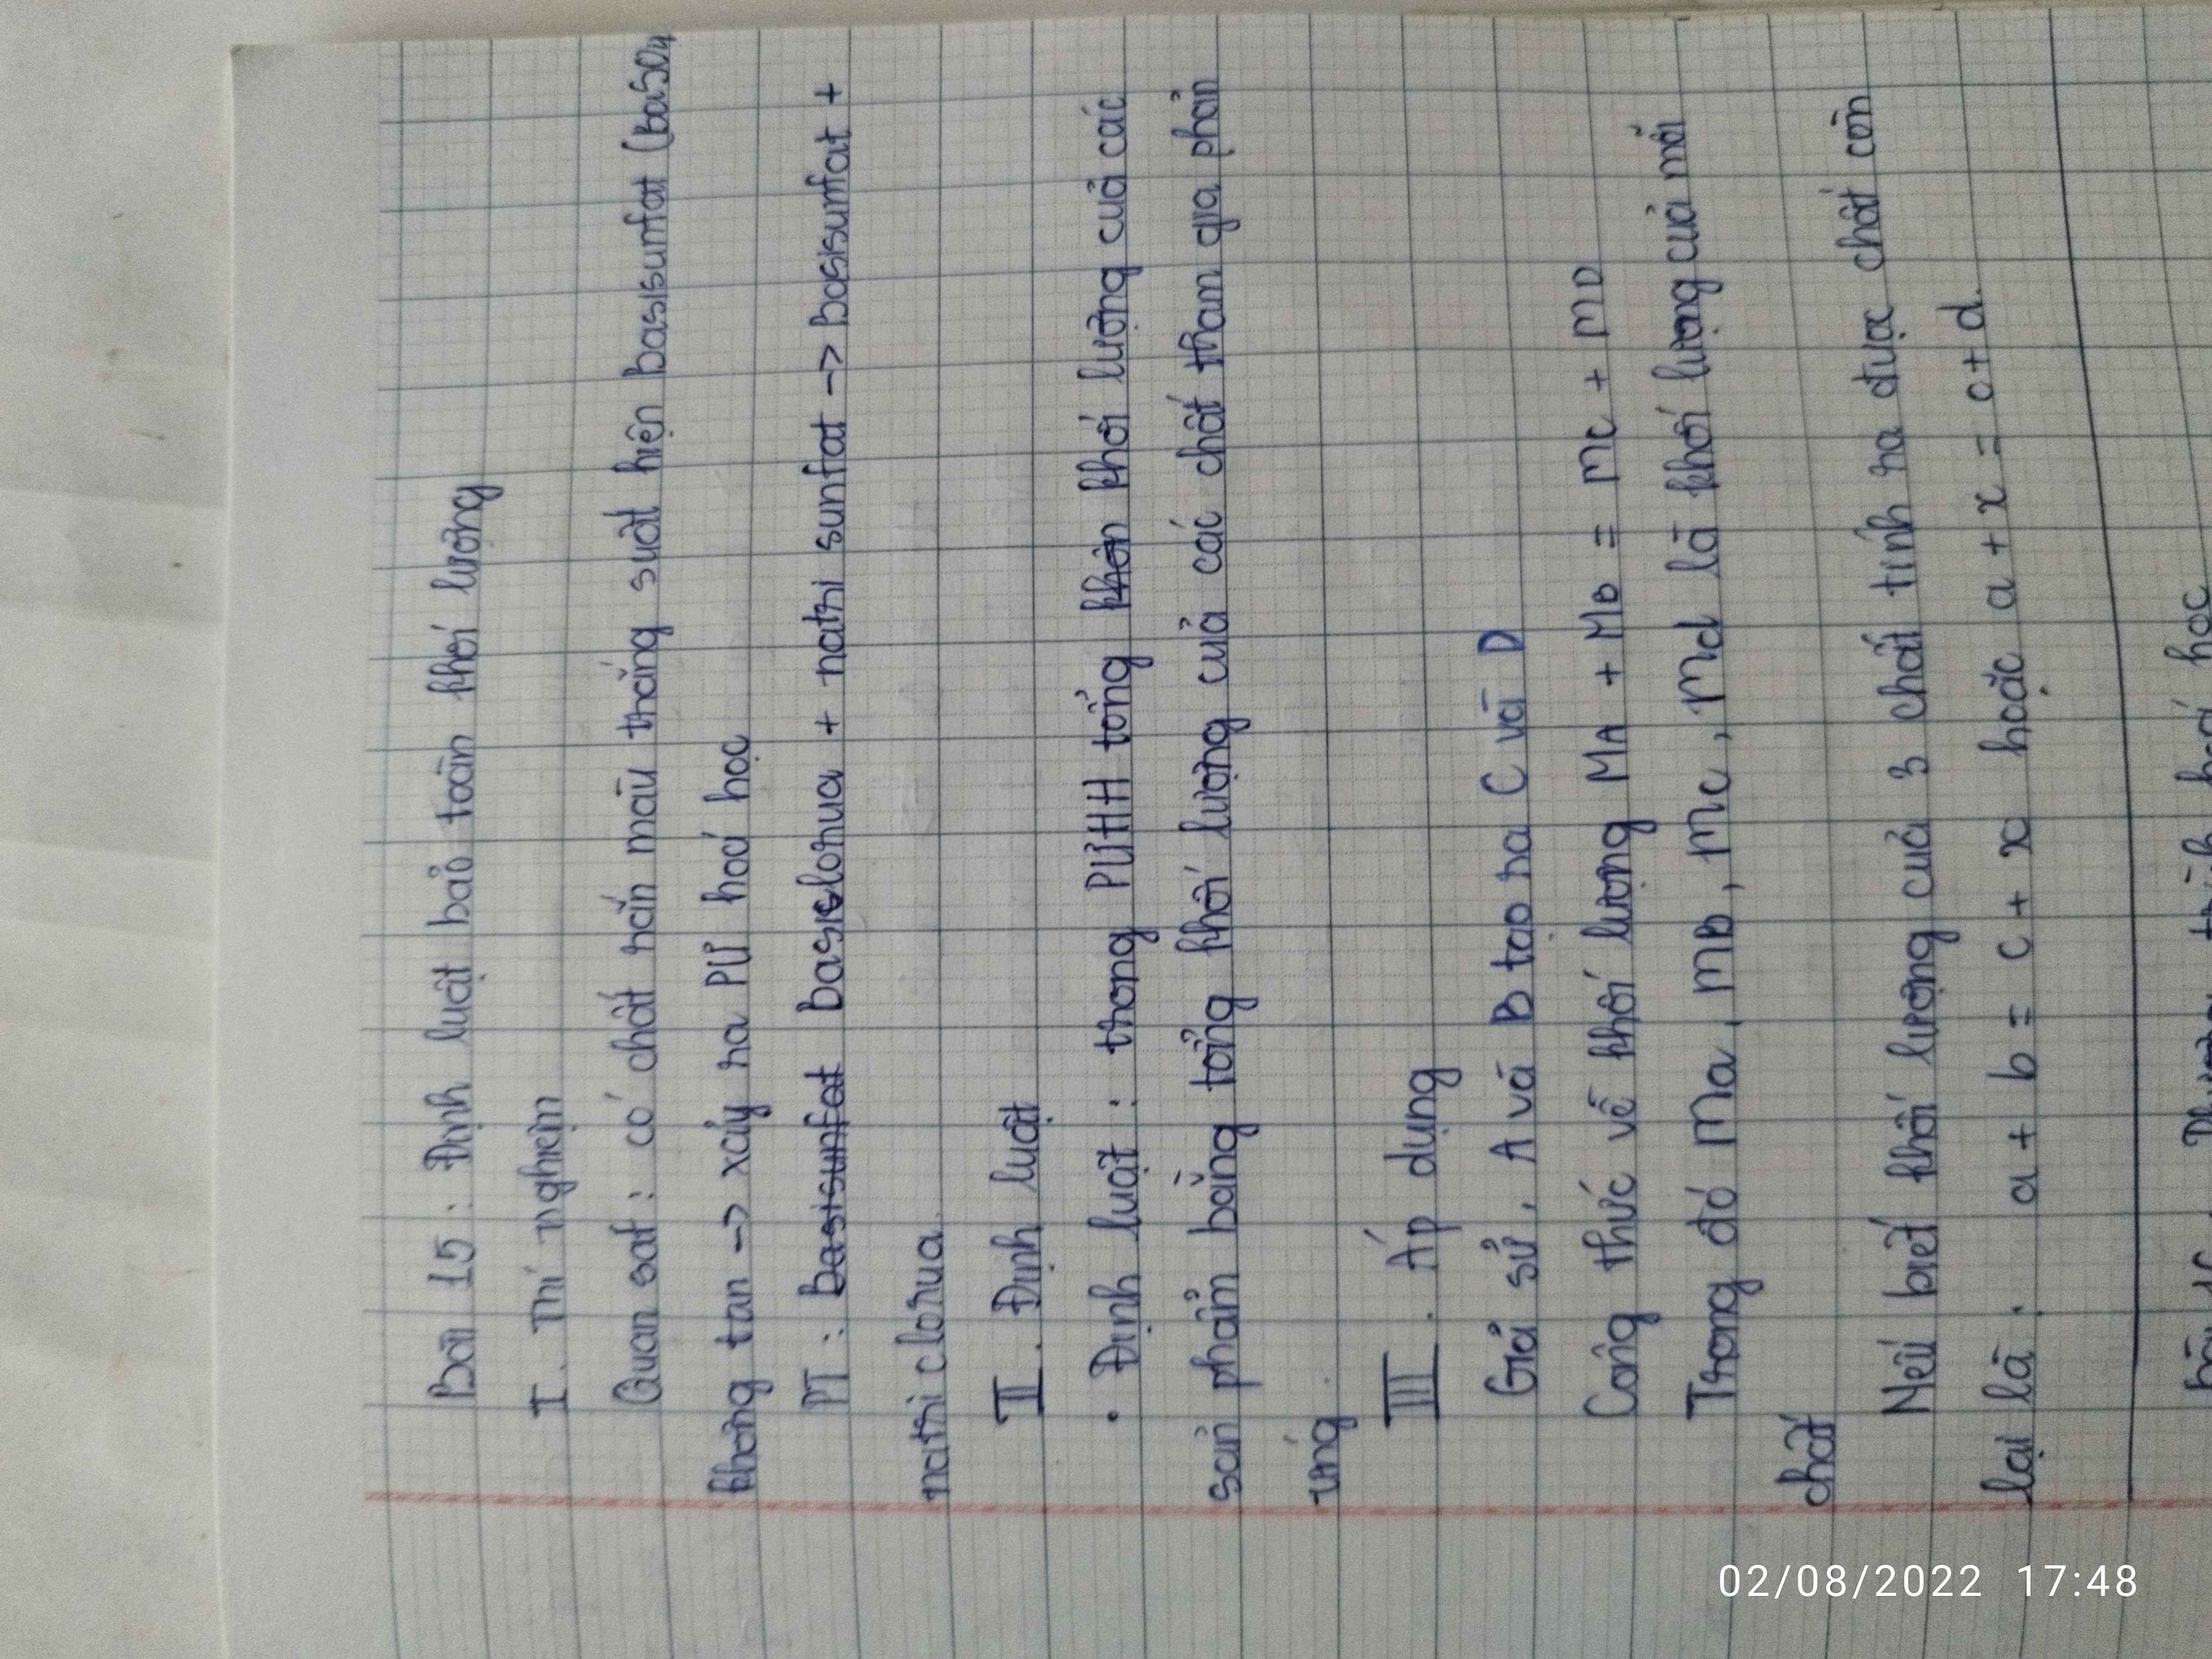 Bài 15 : Định luật bảo toàn khối lượng
I. Thí nghiệm
Quan sát : có chất rắn màu trắng suất hiện basisunfat (baSO4
không tan -> xảy ra PƯ hoá học
PT : basisunfat basiclorua + natri sunfat -> basisunfat +
natri clorua
II. Định luật
• Định luật : trong PƯHH tổng khôn khối lượng của các
sản phẩm bằng tổng khối lượng của các chất tham gia phản
ứng
III. Áp dụng
Giả sử, A và B tạo ra C và D
Công thức về khối lượng MA + MB = MC + MD
Trong đó Ma, MB, Mc, Md là khối lượng của mỗi
chất
Nếu biết khối lượng của 3 chất tính ra được chất còn
lại là : a + b = c + x hoặc a + x = c + d.
trình hoá học
02/08/2022 17:48